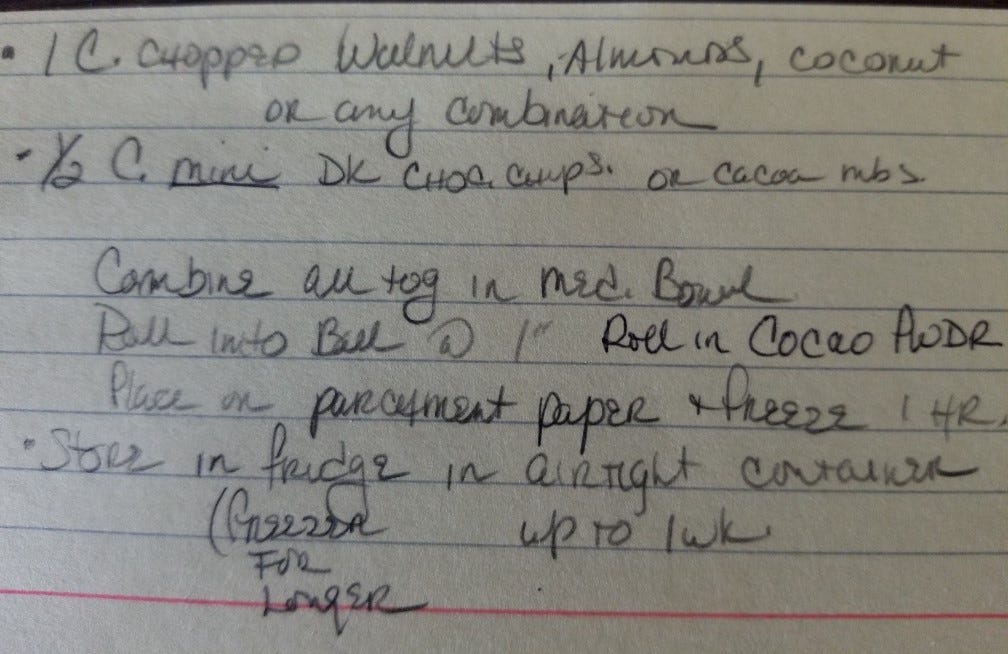 • 1 C. CHOPPED Walnuts, Almonds, coconut
OR any combination
- 1/2 C. mini DK CHOC. CHIPS. OR cacao nibs.
Combine all tog in med. Bowl
Roll into Ball @ 1" Roll in Cocao PWDR
Place on parchment paper + freeze 1 HR.
• Store in fridge in airtight container
(Freezer up to 1 wk
FOR
Longer